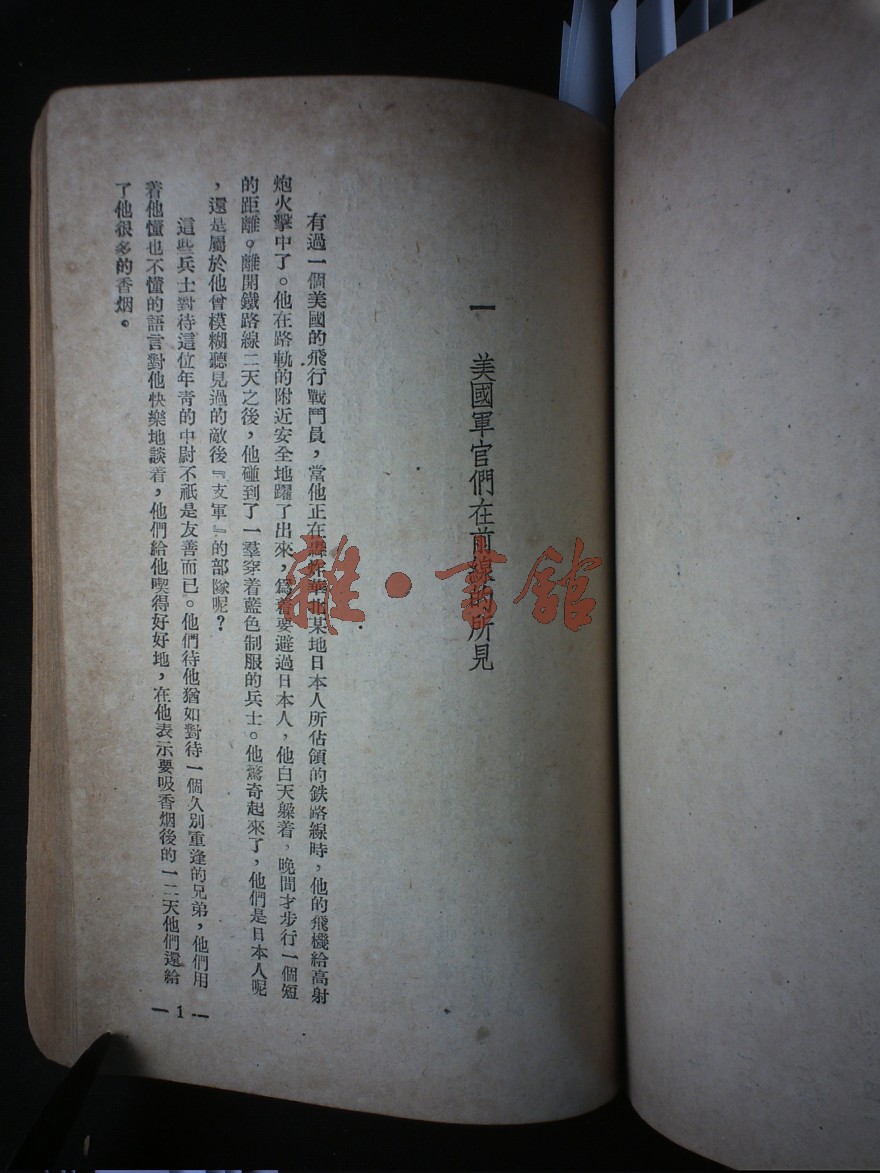 一　美國軍官們在前線的所見
有過一個美國的飛行戰鬥員，當他正在轟炸華北某地日本人所佔領的鉄路線時，他的飛機給高射
炮火擊中了。他在路軌的附近安全地躍了出來，爲着要避過日本人，他白天躲着，晚間才步行一個短
的距離。離開鐵路線二天之後，他碰到了一羣穿着藍色制服的兵士。他驚奇起來了，他們是日本人呢
，還是屬於他曾模糊聽見過的敵後『支軍』的部隊呢？
這些兵士對待這位年青的中尉不祇是友善而已。他們待他猶如對待一個久別重逢的兄弟，他們用
着他懂也不懂的語言對他快樂地談着，他們給他喫得好好地，在他表示要吸香烟後的一二天他們還給
了他很多的香烟。
— 1 —
雜·書館